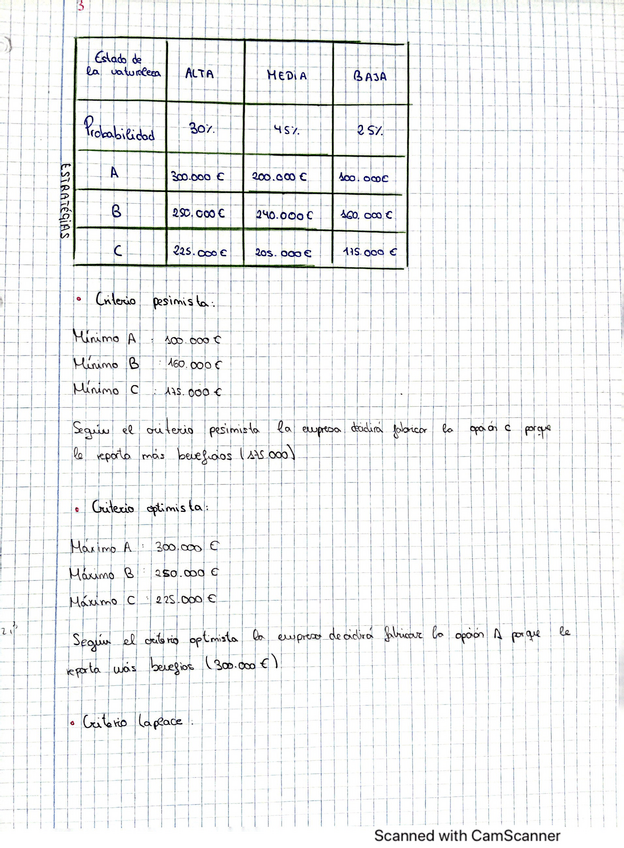 3
Estado de
la naturaleza ALTA MEDIA BAJA
Probabilidad 30% 45% 25%
ESTRATÉGIAS
A 300.000 € 200.000 € 100.000€
B 250.000€ 240.000€ 160.000€
C 225.000€ 205.000€ 175.000 €
• Criterio pesimista:
Mínimo A : 100.000 €
Mínimo B : 160.000€
Mínimo C : 175.000 €
Según el criterio pesimista la empresa decidirá fabricar la opción C porque
le reporta más beneficios (175.000)
• Criterio optimista:
Máximo A : 300.000 €
Máximo B : 250.000 €
Máximo C : 225.000 €
Según el criterio optimista la empresa decidirá fabricar la opción A porque le
reporta más benefios (300.000 €)
• Criterio Laplace:
Scanned with CamScanner